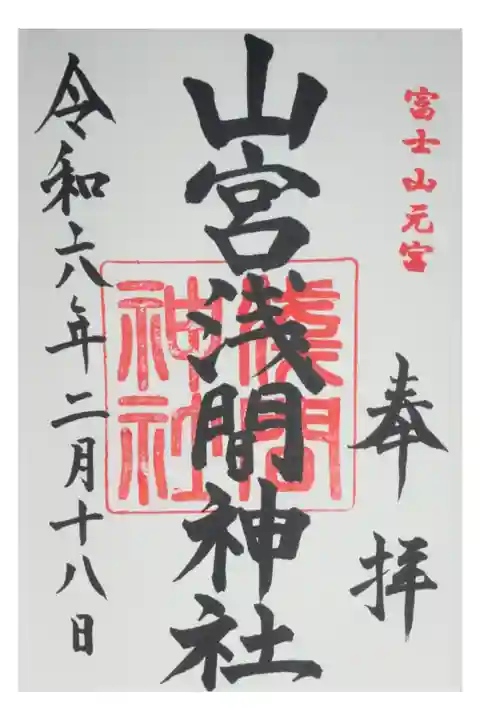 富士山元宮
奉拝
山宮浅間神社
淺間神社
令和六年二月十八日